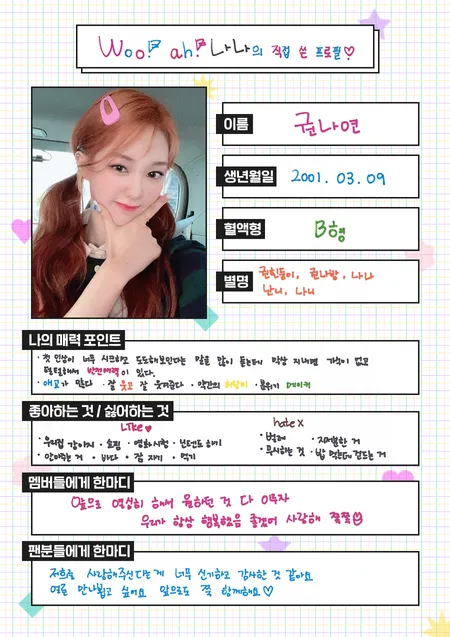 Woo! ah! 나나의 직접 쓴 프로필♡
이름 권나연
생년월일 2001. 03. 09
혈액형 B형
별명 권흰둥이, 권나방, 나나
난니, 나니
나의 매력 포인트
· 첫 인상이 너무 시크하고 도도해보인다는 말을 많이 듣는데 막상 지내면 가식이 없고
털털해서 반전매력이 있다.
· 애교가 많다 · 잘 웃고 잘 웃겨준다 · 약간의 허당미 · 분위기 메이커
좋아하는 것 / 싫어하는 것
Like ♥ hate x
· 우리집 강아지 · 쇼핑 · 영화시청 · 닌텐도 하기 · 벌레 · 지저분한 거
· 안아주는 거 · 바다 · 잠 자기 · 먹기 · 무시하는 것 · 밥 먹는데 건드는 거
멤버들에게 한마디
앞으로 열심히 해서 원하던 것 다 이루자
우리가 항상 행복했음 좋겠어 사랑해 쭐쭐
팬분들에게 한마디
저희를 사랑해주신다는게 너무 신기하고 감사한 것 같아요
얼른 만나뵙고 싶어요 앞으로도 쭉 함께해요♡